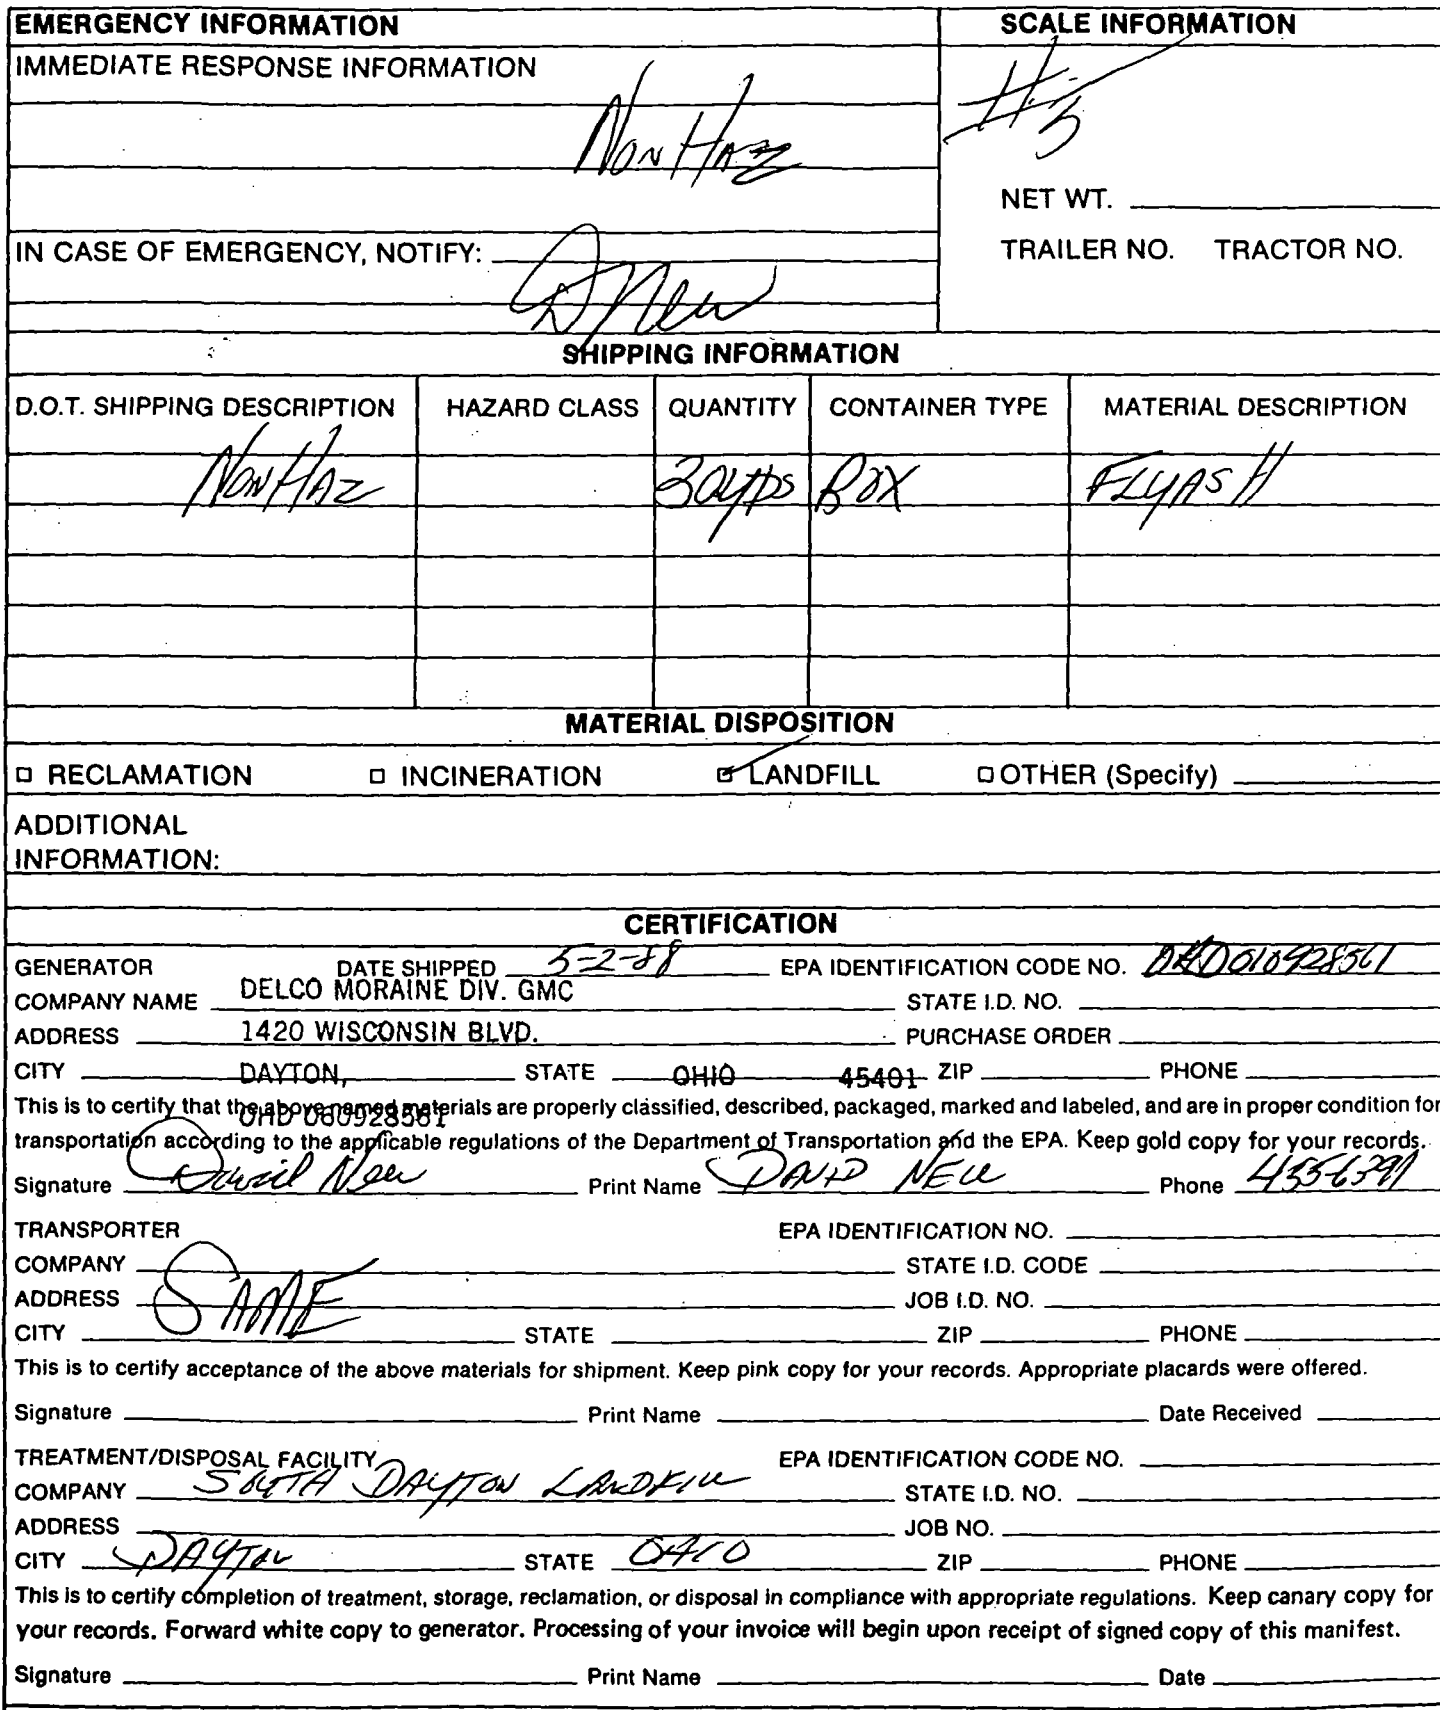 EMERGENCY INFORMATION SCALE INFORMATION
IMMEDIATE RESPONSE INFORMATION
Non Haz
NET WT.
IN CASE OF EMERGENCY, NOTIFY: D New
TRAILER NO. TRACTOR NO.
SHIPPING INFORMATION
D.O.T. SHIPPING DESCRIPTION HAZARD CLASS QUANTITY CONTAINER TYPE MATERIAL DESCRIPTION
Non Haz 30 yds Box FLYASH
MATERIAL DISPOSITION
□ RECLAMATION □ INCINERATION ☑ LANDFILL □ OTHER (Specify)
ADDITIONAL
INFORMATION:
CERTIFICATION
GENERATOR DATE SHIPPED 5-2-88 EPA IDENTIFICATION CODE NO. OHD010928561
COMPANY NAME DELCO MORAINE DIV. GMC STATE I.D. NO.
ADDRESS 1420 WISCONSIN BLVD. PURCHASE ORDER
CITY DAYTON, STATE OHIO 45401 ZIP PHONE
This is to certify that the above named materials are properly classified, described, packaged, marked and labeled, and are in proper condition for
OHD 060928561
transportation according to the applicable regulations of the Department of Transportation and the EPA. Keep gold copy for your records.
Signature David New Print Name DAVID NEW Phone 4556391
TRANSPORTER EPA IDENTIFICATION NO.
COMPANY STATE I.D. CODE
ADDRESS SAME JOB I.D. NO.
CITY STATE ZIP PHONE
This is to certify acceptance of the above materials for shipment. Keep pink copy for your records. Appropriate placards were offered.
Signature Print Name Date Received
TREATMENT/DISPOSAL FACILITY EPA IDENTIFICATION CODE NO.
COMPANY SOUTH DAYTON LANDFILL STATE I.D. NO.
ADDRESS JOB NO.
CITY DAYTON STATE OHIO ZIP PHONE
This is to certify completion of treatment, storage, reclamation, or disposal in compliance with appropriate regulations. Keep canary copy for
your records. Forward white copy to generator. Processing of your invoice will begin upon receipt of signed copy of this manifest.
Signature Print Name Date